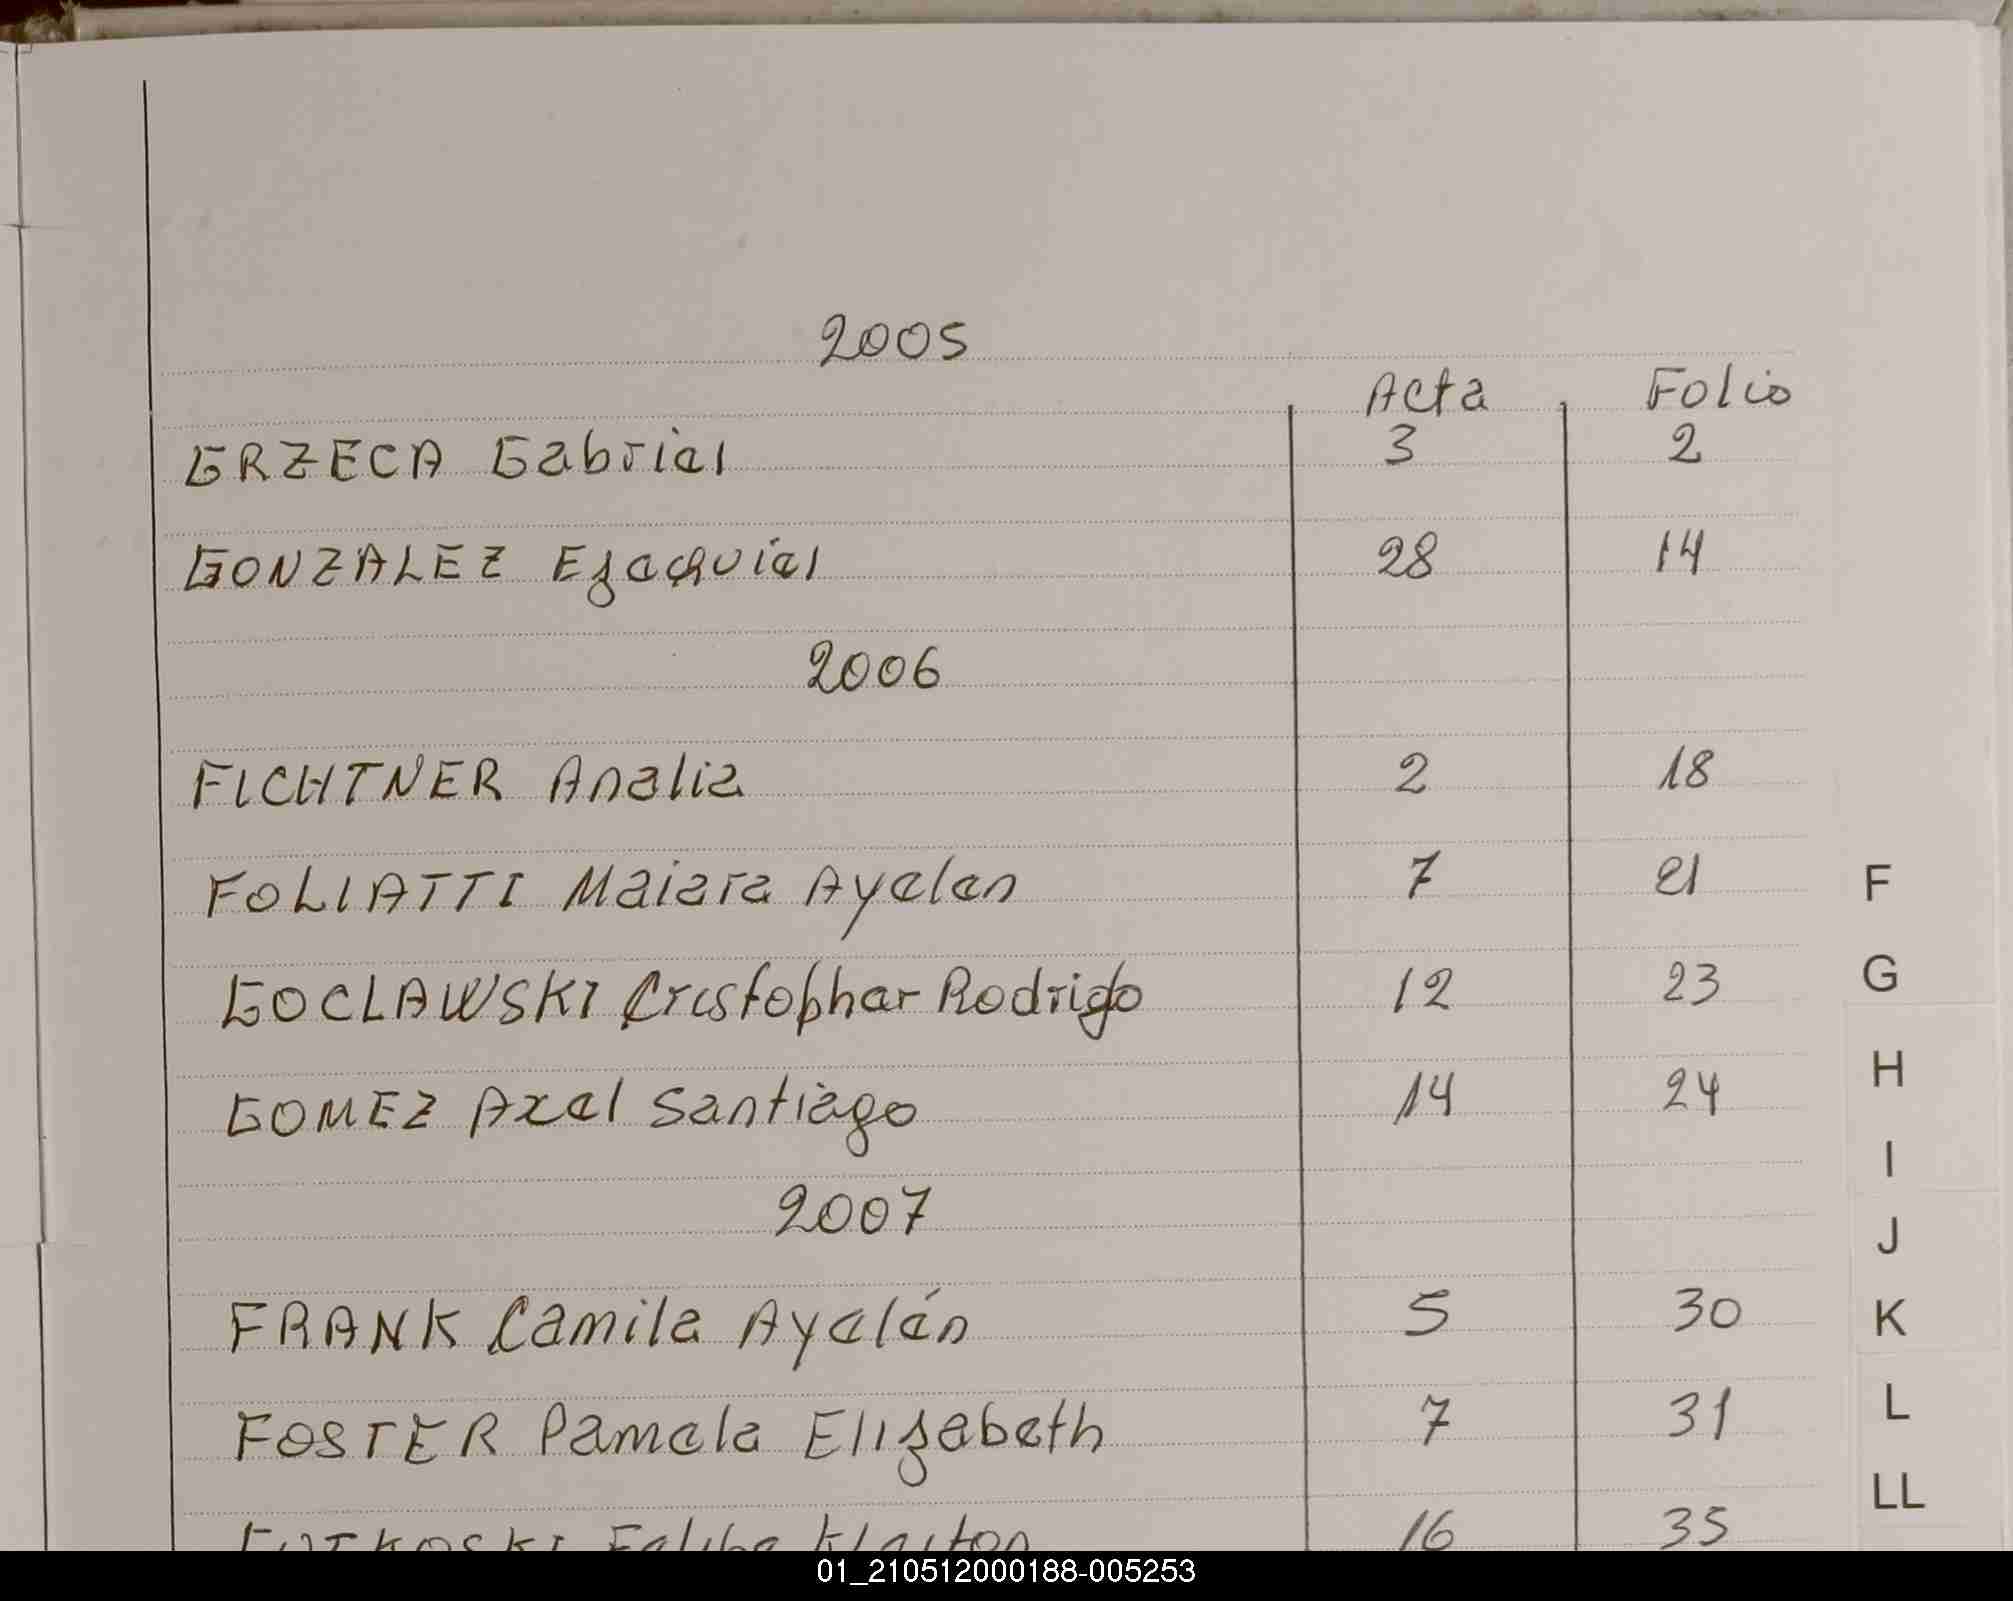 2005
Acta Folio
GRZECA Gabriel 3 2
GONZALEZ Ezequiel 28 14
2006
FICHTNER Analia 2 18
FOLIATTI Maiara Ayelen 7 21
GOCLAWSKI Cristopher Rodrigo 12 23
GOMEZ Axel Santiago 14 24
2007
FRANK Camila Ayelén 5 30
FOSTER Pamela Elizabeth 7 31
Felipe 16 35
F
G
H
I
J
K
L
LL
01_210512000188-005253